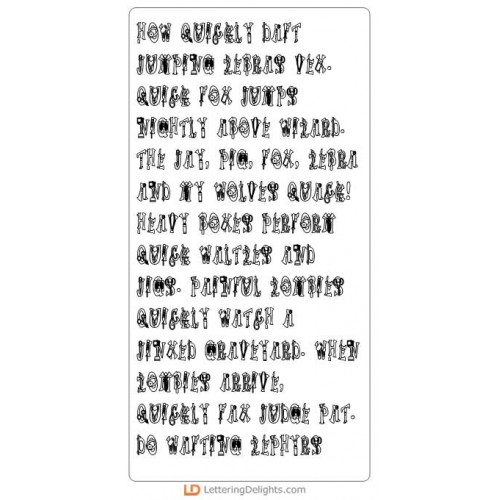 HOW QUICKLY DAFT
JUMPING ZEBRAS VEX.
QUICK FOX JUMPS
NIGHTLY ABOVE WIZARD.
THE JAY, PIG, FOX, ZEBRA
AND MY WOLVES QUACK!
HEAVY BOXES PERFORM
QUICK WALTZES AND
JIGS. PAINFUL ZOMBIES
QUICKLY WATCH A
JINXED GRAVEYARD. WHEN
ZOMBIES ARRIVE,
QUICKLY FAX JUDGE PAT.
DO WAFTING ZEPHYRS
LD LetteringDelights.com